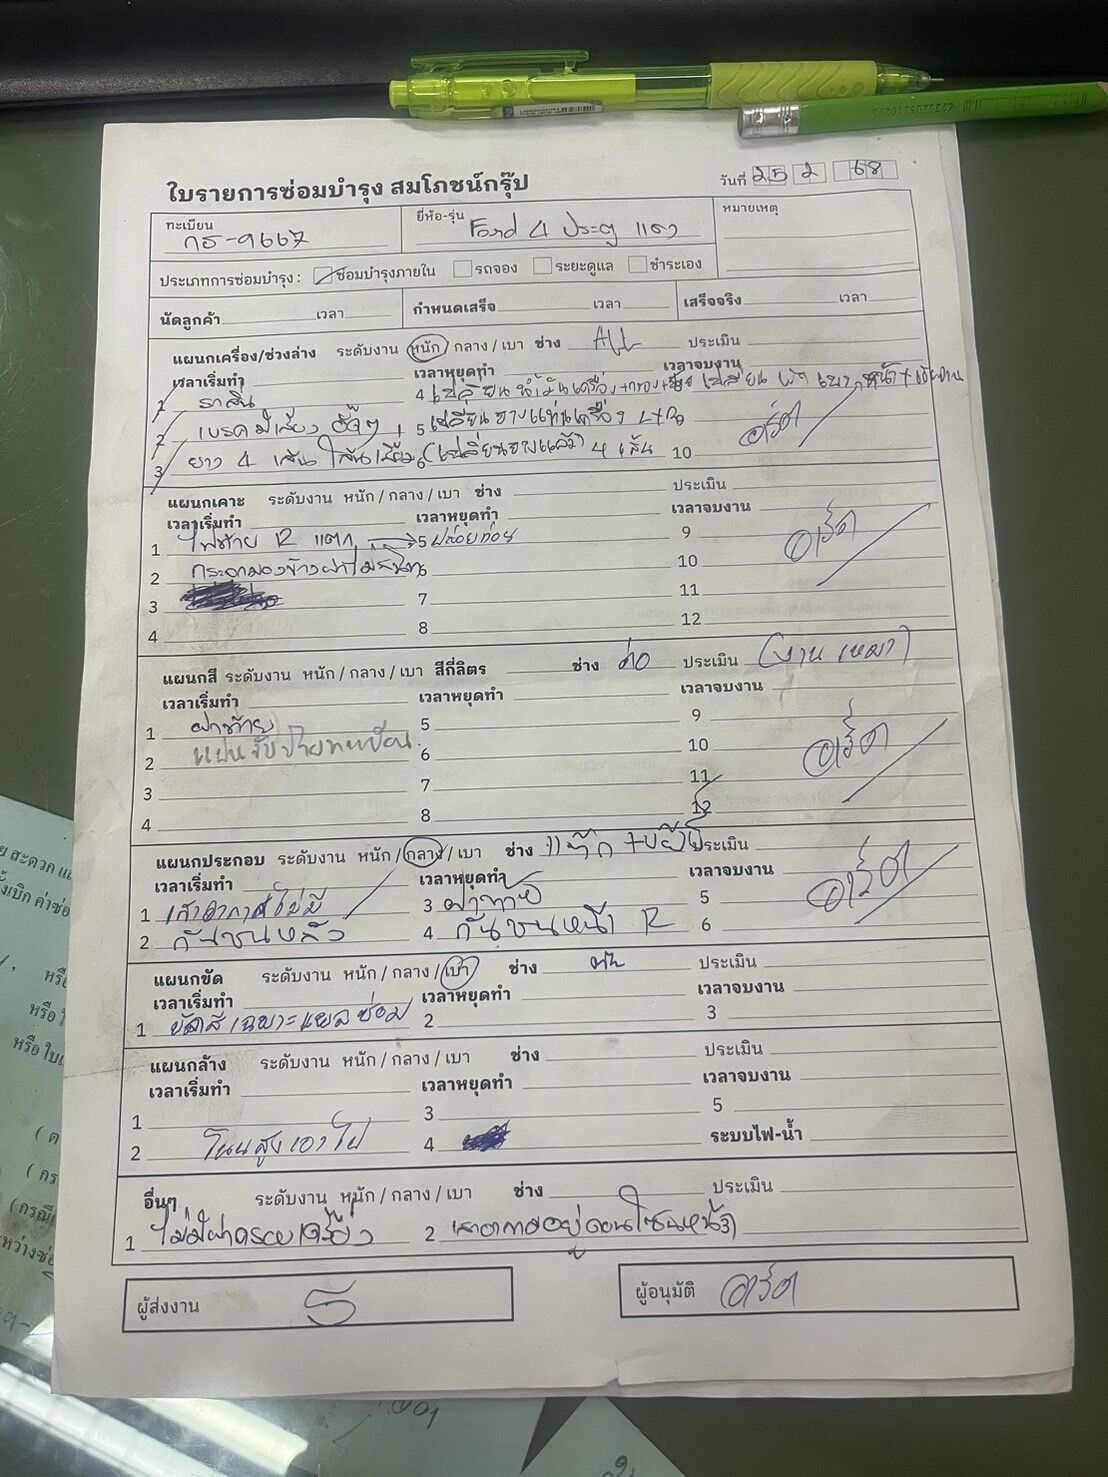 ใบรายการซ่อมบำรุง สมโภชน์กรุ๊ป
วันที่ 25 2 68
ทะเบียน
กธ-9667
ยี่ห้อ-รุ่น Ford 4 ประตู แดง
หมายเหตุ
ประเภทการซ่อมบำรุง : ซ่อมบำรุงภายใน รถจอง ระยะดูแล ชำระเอง
นัดลูกค้า เวลา กำหนดเสร็จ เวลา เสร็จจริง เวลา
แผนกเครื่อง/ช่วงล่าง ระดับงาน หนัก / กลาง / เบา ช่าง ALL ประเมิน
เวลาเริ่มทำ เวลาหยุดทำ เวลาจบงาน
1 4 เปลี่ยนน้ำมันเครื่อง+กรอง เปลี่ยน ผ้าเบรกหน้า +
2 เบรคมีเสียง 5 เปลี่ยนยางแท่นเครื่อง L+R
3 ยาง 4 เส้น 6 (เปลี่ยนยางแล้ว) 4 เส้น 10
แผนกเคาะ ระดับงาน หนัก / กลาง / เบา ช่าง ประเมิน
เวลาเริ่มทำ เวลาหยุดทำ เวลาจบงาน
1 ไฟท้าย R แตก 5 ปล่อยก่อน 9
2 กระจกมองข้าง 6 10
3 7 11
4 8 12
แผนกสี ระดับงาน หนัก / กลาง / เบา สีกี่ลิตร ช่าง ต่อ ประเมิน (งานเหมา)
เวลาเริ่มทำ เวลาหยุดทำ เวลาจบงาน
1 ฝาท้าย 5 9
2 ป้ายทะเบียน 6 10
3 7 11
4 8 12
แผนกประกอบ ระดับงาน หนัก / กลาง / เบา ช่าง ประเมิน
เวลาเริ่มทำ เวลาหยุดทำ เวลาจบงาน
1 เสาอากาศไม่มี 3 ฝาท้าย 5
2 กันชนหลัง 4 กันชนหน้า R 6
แผนกขัด ระดับงาน หนัก / กลาง / เบา ช่าง ประเมิน
เวลาเริ่มทำ เวลาหยุดทำ เวลาจบงาน
1 ขัดสีเฉพาะแผลซ่อม 2 3
แผนกล้าง ระดับงาน หนัก / กลาง / เบา ช่าง ประเมิน
เวลาเริ่มทำ เวลาหยุดทำ เวลาจบงาน
1 3 5
2 โหนสูงเอาไป 4 ระบบไฟ-น้ำ
อื่นๆ ระดับงาน หนัก / กลาง / เบา ช่าง ประเมิน
1 ไม่มีฝาครอบเครื่อง 2 เสาอากาศอยู่คอนโซนหน้า
ผู้ส่งงาน
ผู้อนุมัติ